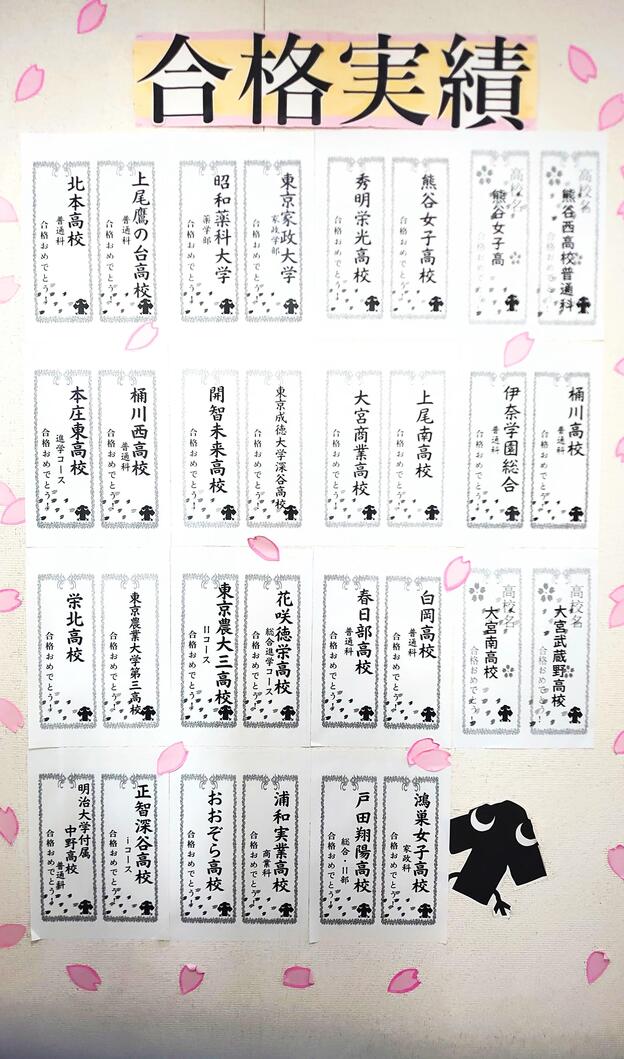 合格実績
高校名
熊谷西高校普通科
高校名
熊谷女子高
熊谷女子高校
合格おめでとう！
秀明栄光高校
合格おめでとう！
東京家政大学
家政学部
合格おめでとう！
昭和薬科大学
薬学部
合格おめでとう！
上尾鷹の台高校
普通科
合格おめでとう！
北本高校
普通科
合格おめでとう！
桶川高校
普通科
合格おめでとう！
伊奈学園総合
普通科
合格おめでとう！
上尾南高校
合格おめでとう！
大宮商業高校
合格おめでとう！
東京成徳大学深谷高校
合格おめでとう！
開智未来高校
合格おめでとう！
桶川西高校
普通科
合格おめでとう！
本庄東高校
進学コース
合格おめでとう！
高校名
大宮武蔵野高校
合格おめでとう
高校名
大宮南高校
合格おめでとう
白岡高校
普通科
合格おめでとう！
春日部高校
普通科
合格おめでとう！
花咲徳栄高校
総合進学コース
合格おめでとう！
東京農大三高校
IIコース
合格おめでとう！
東京農業大学第三高校
合格おめでとう！
栄北高校
合格おめでとう！
鴻巣女子高校
家政科
合格おめでとう！
戸田翔陽高校
総合・II部
合格おめでとう！
浦和実業高校
商業科
合格おめでとう！
おおぞら高校
合格おめでとう！
正智深谷高校
iコース
合格おめでとう！
明治大学付属
中野高校
普通科
合格おめでとう！